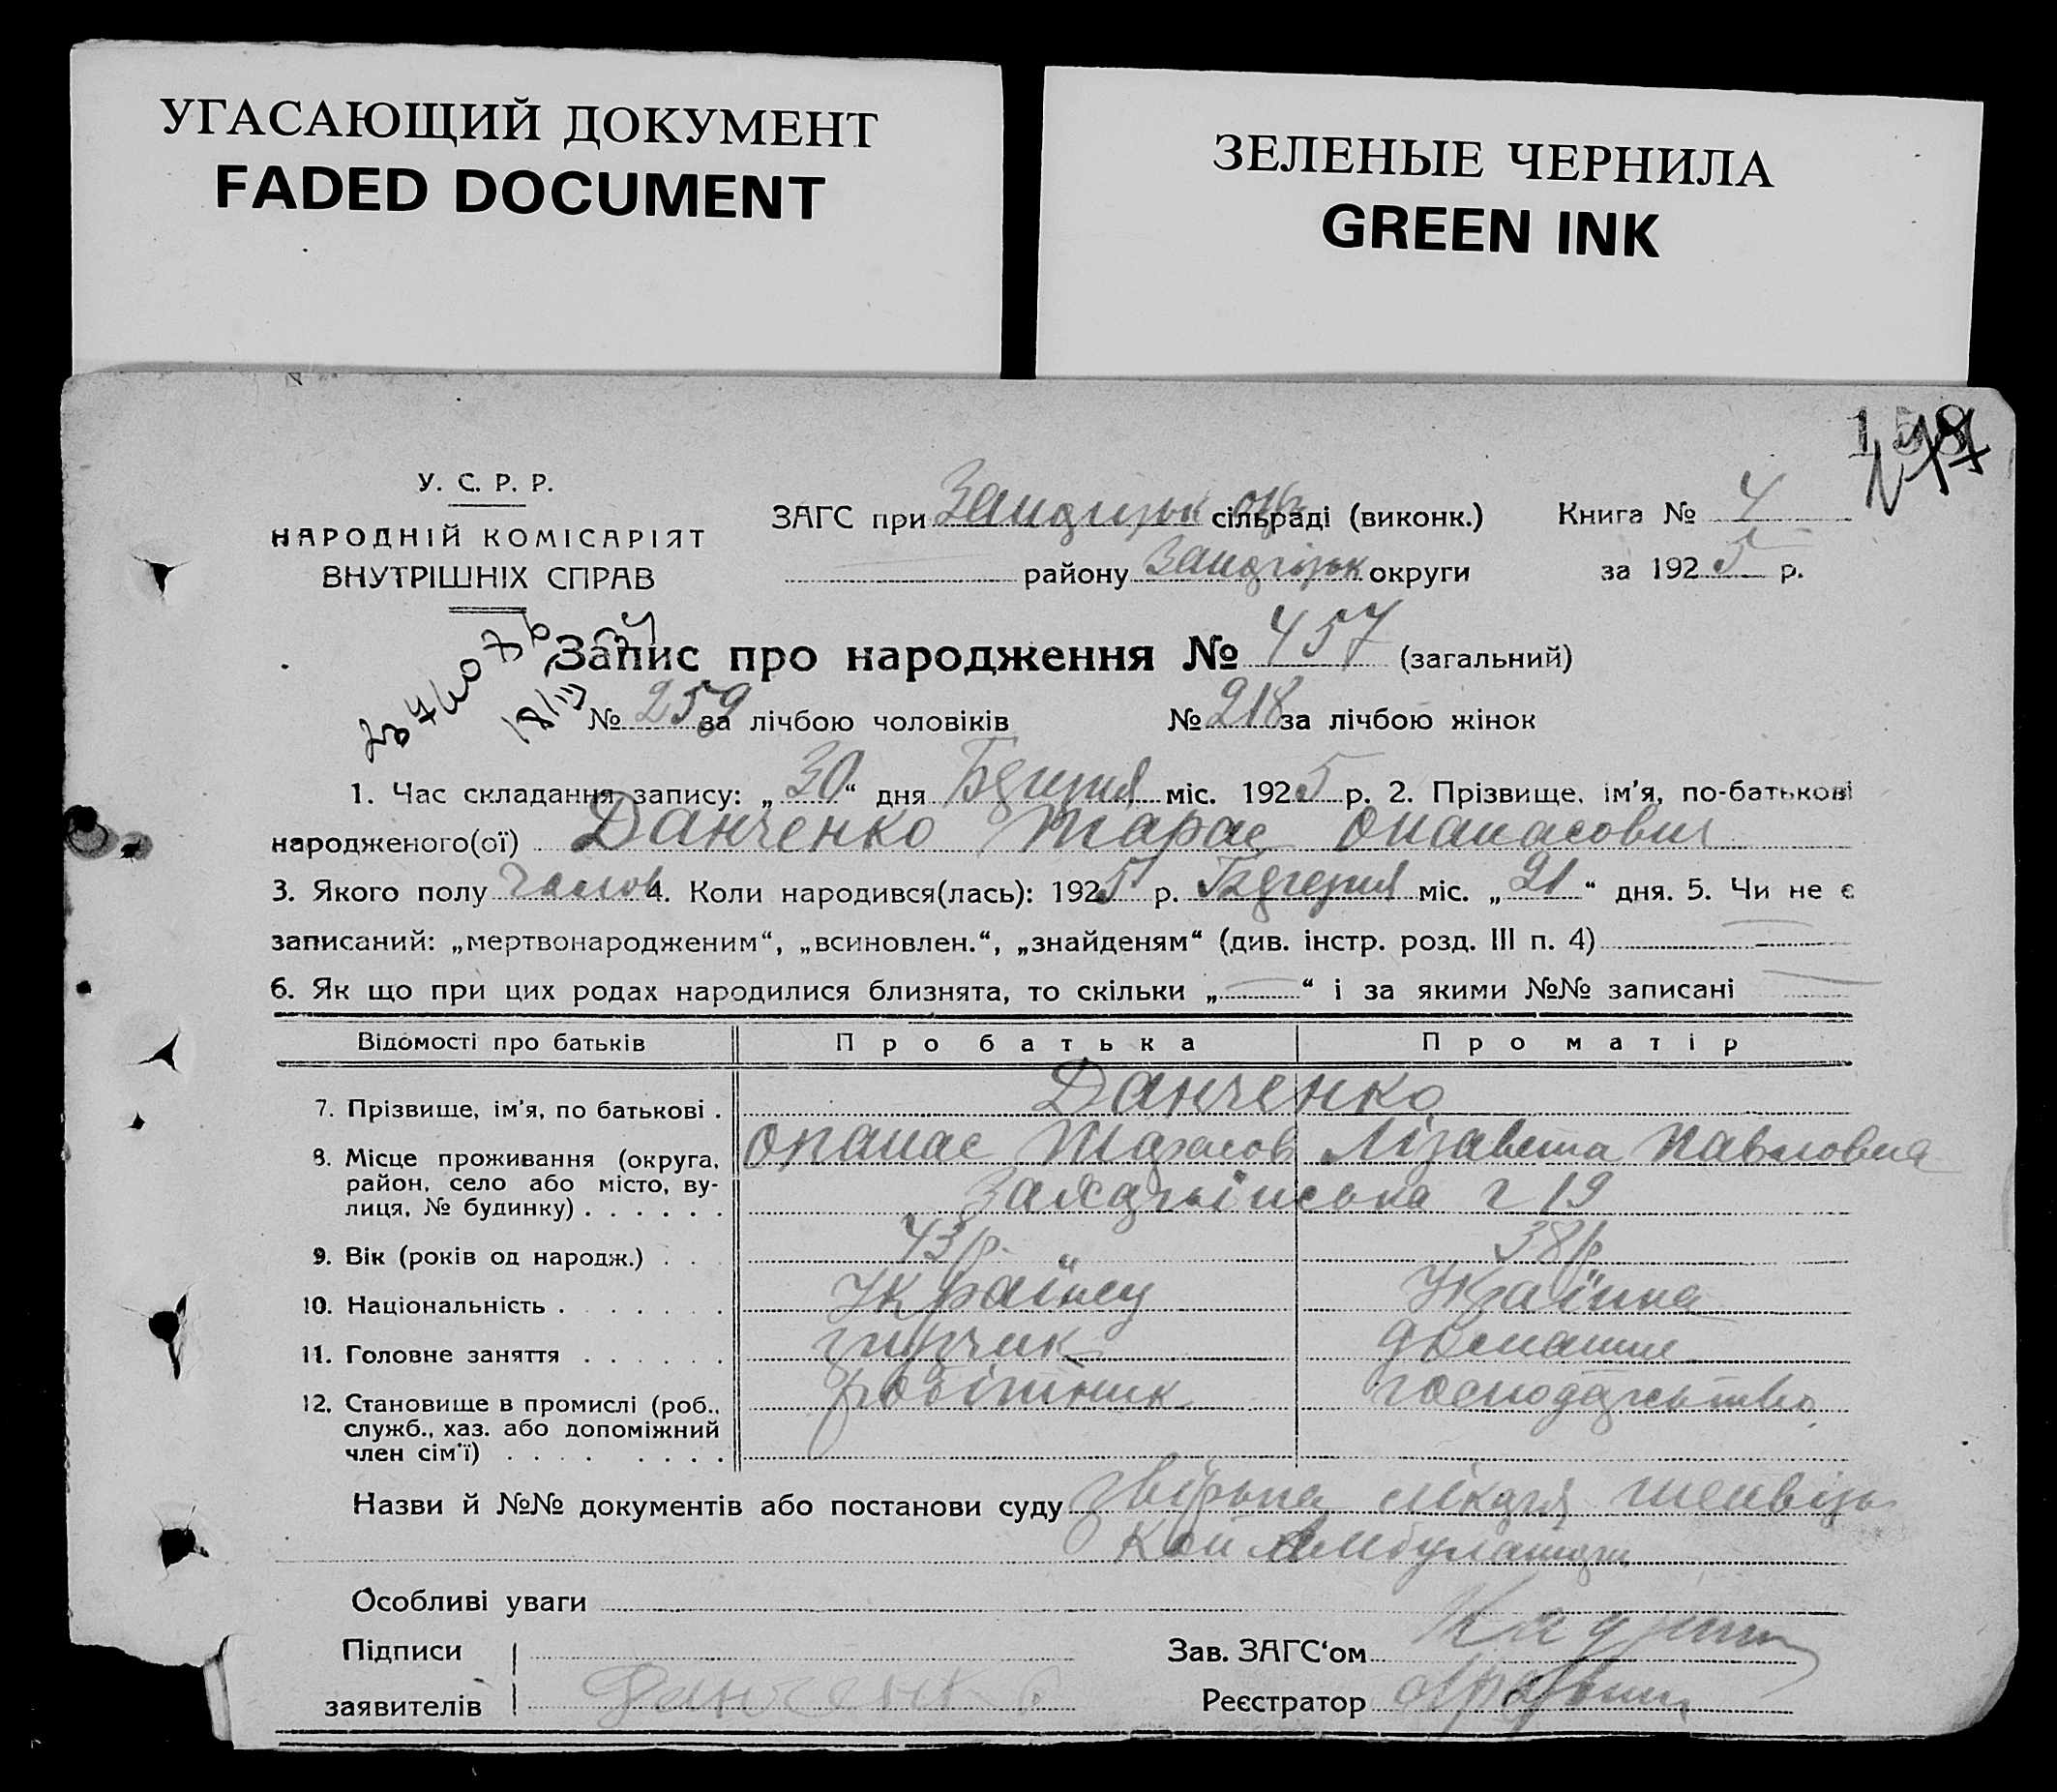 УГАСАЮЩИЙ ДОКУМЕНТ
FADED DOCUMENT
ЗЕЛЕНЫЕ ЧЕРНИЛА
GREEN INK
У. С. Р. Р.
НАРОДНІЙ КОМІСАРІЯТ
ВНУТРІШНІХ СПРАВ
ЗАГС при сільраді (виконк.)
району округи
Книга № 4
за 1925 р.
Запис про народження № 457 (загальний)
№ 259 за лічбою чоловіків № 218 за лічбою жінок
1. Час складання запису: „30“ дня міс. 1925 р. 2. Прізвище, ім’я, по-батькові
народженого(ої) Данченко Тарас Опанасович
3. Якого полу 4. Коли народився(лась): 1925 р. міс. „21“ дня. 5. Чи не є
записаний: „мертвонародженим“, „всиновлен.“, „знайденям“ (див. інстр. розд. III п. 4)
6. Як що при цих родах народилися близнята, то скільки „—“ і за якими №№ записані —
Відомості про батьків Про батька Про матір
7. Прізвище, ім’я, по батькові . Данченко
Опанас Тарасов Лізавета Павловна
8. Місце проживання (округа,
район, село або місто, ву-
лиця, № будинку) . . . . . . 19
9. Вік (років од народж.) . . . 43 р. 38 р.
10. Національність . . . . . . . Українец Українка
11. Головне заняття . . . . . . домашнє
12. Становище в промислі (роб., робітник господарство
служб., хаз. або допоміжний
член сім’ї) . . . . . . . .
Назви й №№ документів або постанови суду лікаря
кой Амбулаторіи
Особливі уваги
Підписи
заявителів Данченко
Зав. ЗАГС‘ом
Реєстратор